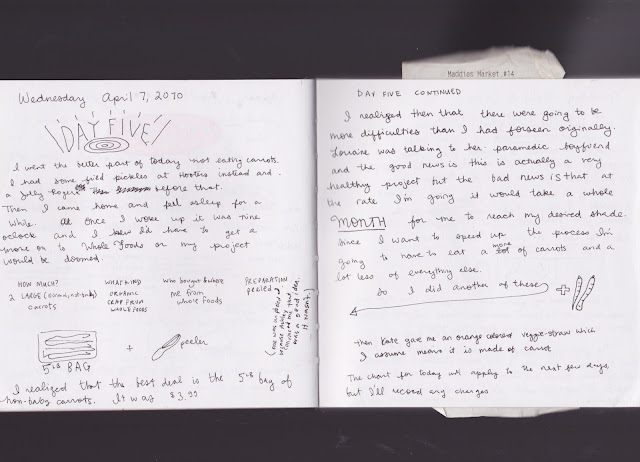 Wednesday April 7, 2010
DAY FIVE
I went the better part of today not eating carrots.
I had some fried pickles at Hooters instead and
a Jolly Roger before that.
Then I came home and fell asleep for a
while. All once I woke up it was nine
oclock and I knew I'd have to get a
move on to Whole Foods or my project
would be doomed.
HOW MUCH?
2 LARGE (normal, not-baby)
carrots
WHAT KIND
ORGANIC
CRAP FROM
WHOLE FOODS
Who bought & where
me from
whole foods
PREPARATION
peeled
(one was unpeeled
because Kate
convinced me that
was a good idea.
It wasn't.)
5 LB BAG
+
peeler
I realized that the best deal is the 5 LB bag of
non-baby carrots. It was $3.99
Maddies Market #14
DAY FIVE CONTINUED
I realized then that there were going to be
more difficulties than I had forseen originally.
Lorraine was talking to her paramedic boyfriend
and the good news is this is actually a very
healthy project but the bad news is that at
the rate I'm going it would take a whole
MONTH for me to reach my desired shade.
Since I want to speed up the process I'm
going to have to eat a more lot of carrots and a
lot less of everything else.
So I did another of these
+
then Kate gave me an orange colored veggie-straw which
I assume means it is made of carrot
The chart for today will apply to the next few days
but I'll record any changes